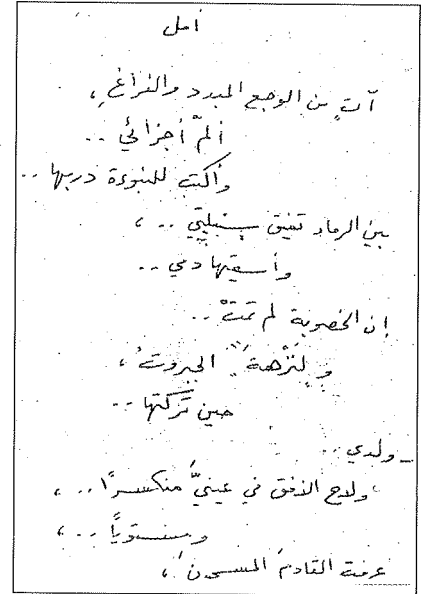 أمل
آتٍ من الوجع المبدد والفراغِ،
ألمّ أجزائي ..
وأكتب للنبوءة دربها ..
بين الرماد تفيق سنبلتي .. ،
وأسقيها دمي ..
إن الخصوبة لم تمتْ ..
الجبروت،
حين تركتها ..
- ولدي ..
ولاح الأفق في عينيَّ منكسرًا .. ،
ومستوياً .. ،
عرفت القادمَ المسجون،